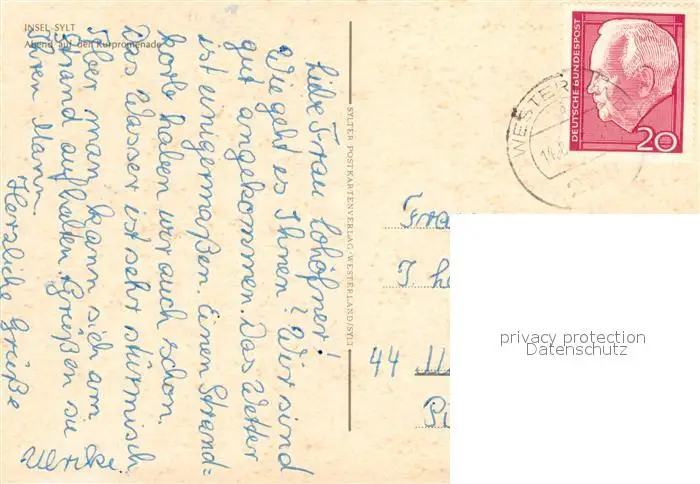 INSEL SYLT
Abend auf der Kurpromenade
Liebe Frau Lohöfner!
Wie geht es Ihnen? Wir sind
gut angekommen. Das Wetter
ist einigermaßen. Einen Strand=
korb haben wir auch schon.
Das Wasser ist sehr stürmisch
Aber man kann sich am
Strand aufhalten. Grüßen sie
Ihren Mann.
Herzliche Grüße
Ulrike.
SYLTER POSTKARTENVERLAG·WESTERLAND/SYLT
DEUTSCHE BUNDESPOST
20
WESTER
Fra
T.
44
privacy protection
Datenschutz